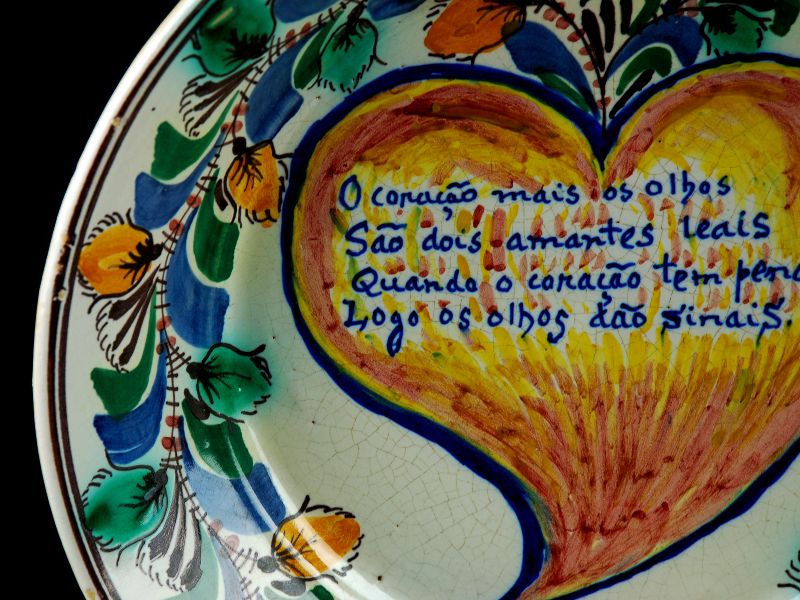 O coração mais os olhos
São dois amantes leais
Quando o coração tem
Logo os olhos dão sinais.